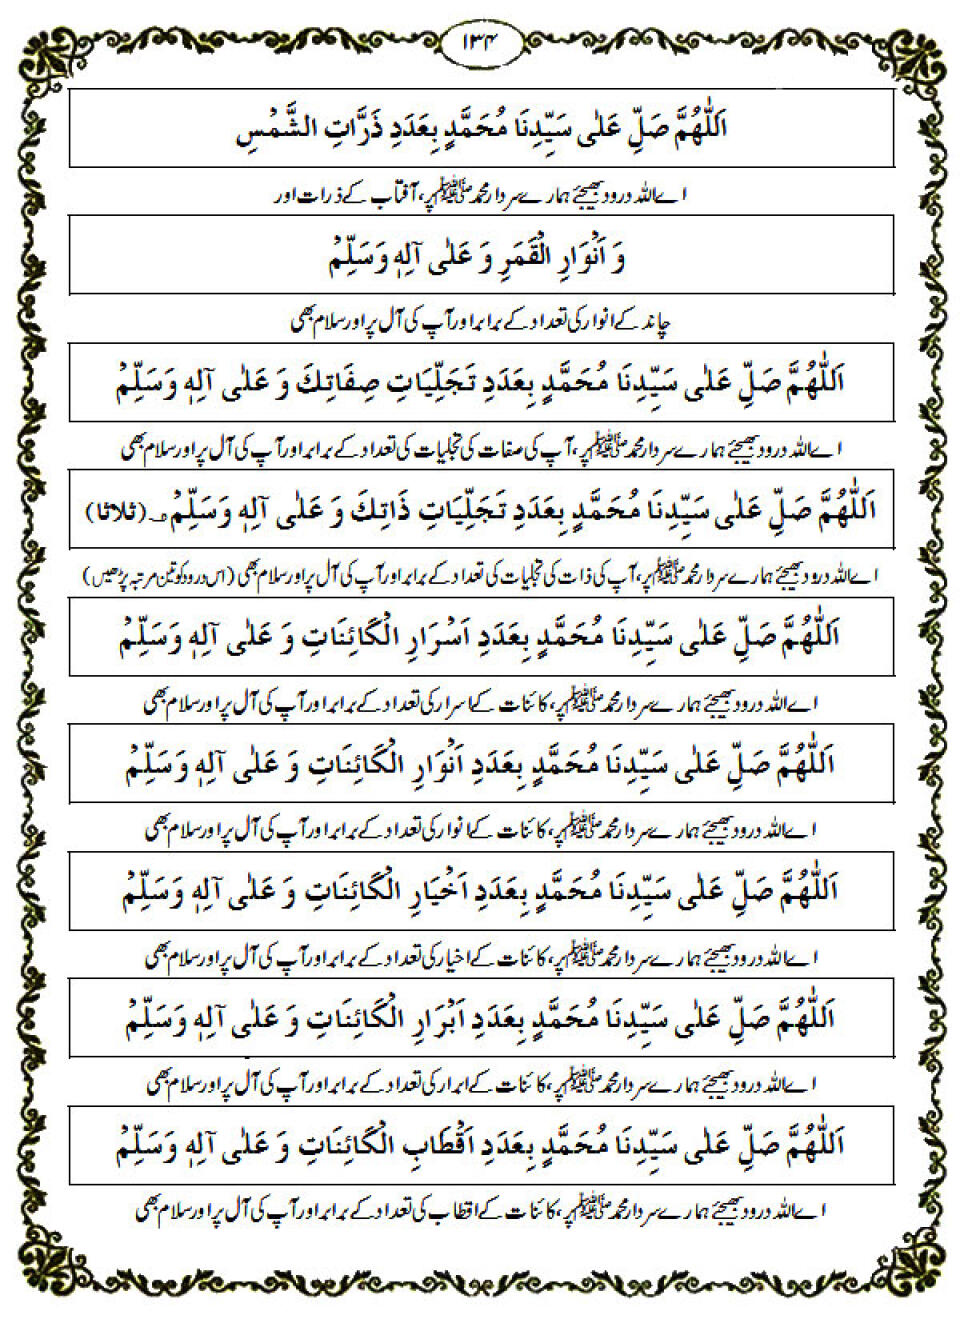 ۱۳۴
اَللّٰهُمَّ صَلِّ عَلٰى سَيِّدِنَا مُحَمَّدٍ بِعَدَدِ ذَرَّاتِ الشَّمْسِ
اے اللہ درود بھیجئے ہمارے سردار محمد ﷺ پر، آفتاب کے ذرات اور
وَ اَنْوَارِ الْقَمَرِ وَ عَلٰى آلِهٖ وَسَلِّمْ
چاند کے انوار کی تعداد کے برابر اور آپ کی آل پر اور سلام بھی
اَللّٰهُمَّ صَلِّ عَلٰى سَيِّدِنَا مُحَمَّدٍ بِعَدَدِ تَجَلِّيَاتِ صِفَاتِكَ وَ عَلٰى آلِهٖ وَسَلِّمْ
اے اللہ درود بھیجئے ہمارے سردار محمد ﷺ پر، آپ کی صفات کی تجلیات کی تعداد کے برابر اور آپ کی آل پر اور سلام بھی
اَللّٰهُمَّ صَلِّ عَلٰى سَيِّدِنَا مُحَمَّدٍ بِعَدَدِ تَجَلِّيَاتِ ذَاتِكَ وَ عَلٰى آلِهٖ وَسَلِّمْ۔ (ثلاثا)
اے اللہ درود بھیجئے ہمارے سردار محمد ﷺ پر، آپ کی ذات کی تجلیات کی تعداد کے برابر اور آپ کی آل پر اور سلام بھی (اس درود کو تین مرتبہ پڑھیں)
اَللّٰهُمَّ صَلِّ عَلٰى سَيِّدِنَا مُحَمَّدٍ بِعَدَدِ اَسْرَارِ الْكَائِنَاتِ وَ عَلٰى آلِهٖ وَسَلِّمْ
اے اللہ درود بھیجئے ہمارے سردار محمد ﷺ پر، کائنات کے اسرار کی تعداد کے برابر اور آپ کی آل پر اور سلام بھی
اَللّٰهُمَّ صَلِّ عَلٰى سَيِّدِنَا مُحَمَّدٍ بِعَدَدِ اَنْوَارِ الْكَائِنَاتِ وَ عَلٰى آلِهٖ وَسَلِّمْ
اے اللہ درود بھیجئے ہمارے سردار محمد ﷺ پر، کائنات کے انوار کی تعداد کے برابر اور آپ کی آل پر اور سلام بھی
اَللّٰهُمَّ صَلِّ عَلٰى سَيِّدِنَا مُحَمَّدٍ بِعَدَدِ اَخْيَارِ الْكَائِنَاتِ وَ عَلٰى آلِهٖ وَسَلِّمْ
اے اللہ درود بھیجئے ہمارے سردار محمد ﷺ پر، کائنات کے اخیار کی تعداد کے برابر اور آپ کی آل پر اور سلام بھی
اَللّٰهُمَّ صَلِّ عَلٰى سَيِّدِنَا مُحَمَّدٍ بِعَدَدِ اَبْرَارِ الْكَائِنَاتِ وَ عَلٰى آلِهٖ وَسَلِّمْ
اے اللہ درود بھیجئے ہمارے سردار محمد ﷺ پر، کائنات کے ابرار کی تعداد کے برابر اور آپ کی آل پر اور سلام بھی
اَللّٰهُمَّ صَلِّ عَلٰى سَيِّدِنَا مُحَمَّدٍ بِعَدَدِ اَقْطَابِ الْكَائِنَاتِ وَ عَلٰى آلِهٖ وَسَلِّمْ
اے اللہ درود بھیجئے ہمارے سردار محمد ﷺ پر، کائنات کے اقطاب کی تعداد کے برابر اور آپ کی آل پر اور سلام بھی